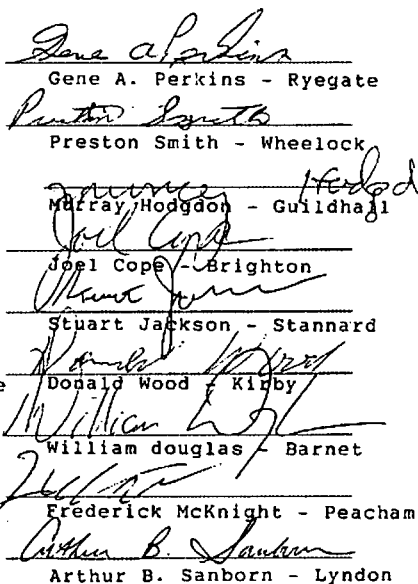 Gene A Perkins
Gene A. Perkins - Ryegate
Preston Smith
Preston Smith - Wheelock
Hodgd
Murray Hodgdon - Guildhall
Joel Cope
Joel Cope - Brighton
Stuart Jackson - Stannard
Donald Wood
e Donald Wood - Kirby
William
William douglas - Barnet
Frederick McKnight - Peacham
Arthur B. Sanborn
Arthur B. Sanborn - Lyndon